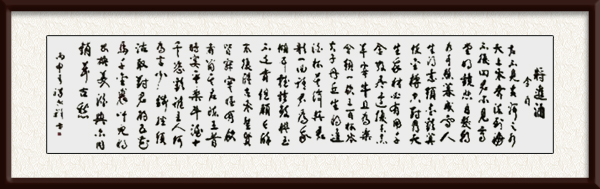 將進酒
李白
君不見黃河之水
天上來奔流到海
不復回君不見高
堂明鏡悲白髮朝
如青絲暮成雪人
生得意須盡歡莫
使金樽空對月天
生我材必有用千
金散盡還復來烹
羊宰牛且為樂
會須一飲三百杯岑
夫子丹丘生將進酒
杯莫停與君
歌一曲請君為我
傾耳聽鐘鼓饌玉
不足貴但願長醉
不復醒古來聖賢
皆寂寞惟有飲
者留其名陳王昔
時宴平樂斗酒十
千恣歡謔主人何
為言少錢徑須
沽取對君酌五花
馬千金裘呼兒將
出換美酒與爾同
銷萬古愁
丙申年